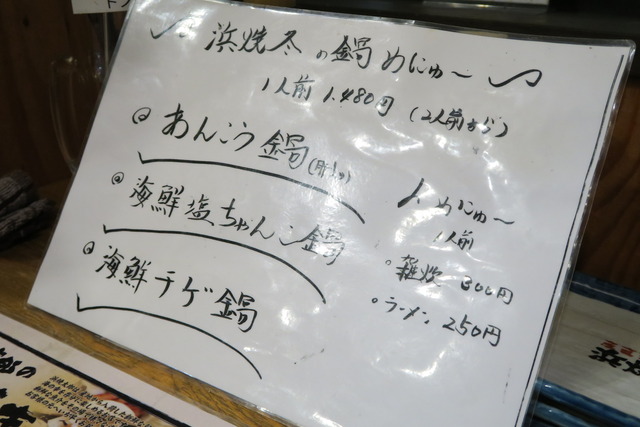 浜焼冬の鍋めにゅ〜
1人前 1.480円 (2人前から)
◎ あんこう鍋
◎ 海鮮塩ちゃんこ鍋
◎ 海鮮チゲ鍋
〆めにゅ〜
1人前
○ 雑炊 300円
○ ラーメン 250円